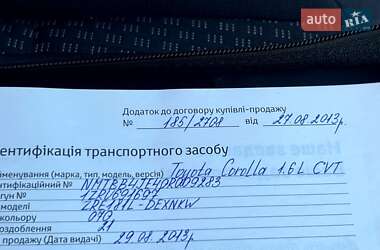 auto RIA
Додаток до договору купівлі-продажу
№ 185/2708 від 27.08.2013р.
ентифікація транспортного засобу
йменування (марка, тип, модель, версія) Toyota Corolla 1.6L CVT
ентифікаційний №
гун №
моделі ZRE181L-DEXNKW
кольору 070
роздоблення 21
продажу (Дата видачі) 29.08.2013р.